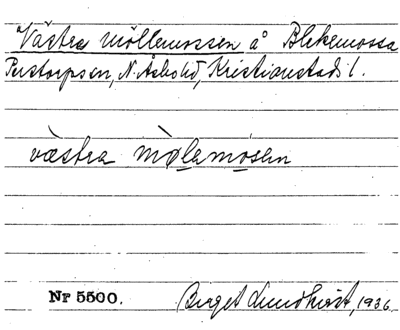 Västra möllemossen å Blekemossa
Perstorps sn, N. Åsbo hd, Kristianstads l.
västra mølemosen
Nr 5500. Birget Lundkvist, 1936.